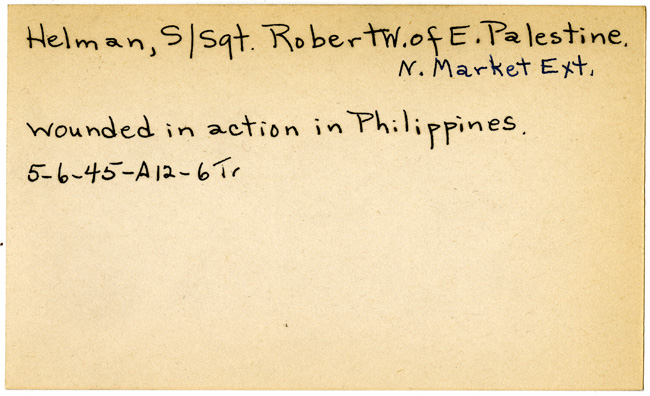 Helman, S/Sgt. Robert W. of E. Palestine.
N. Market Ext.
wounded in action in Philippines.
5-6-45-A12-6 Tr